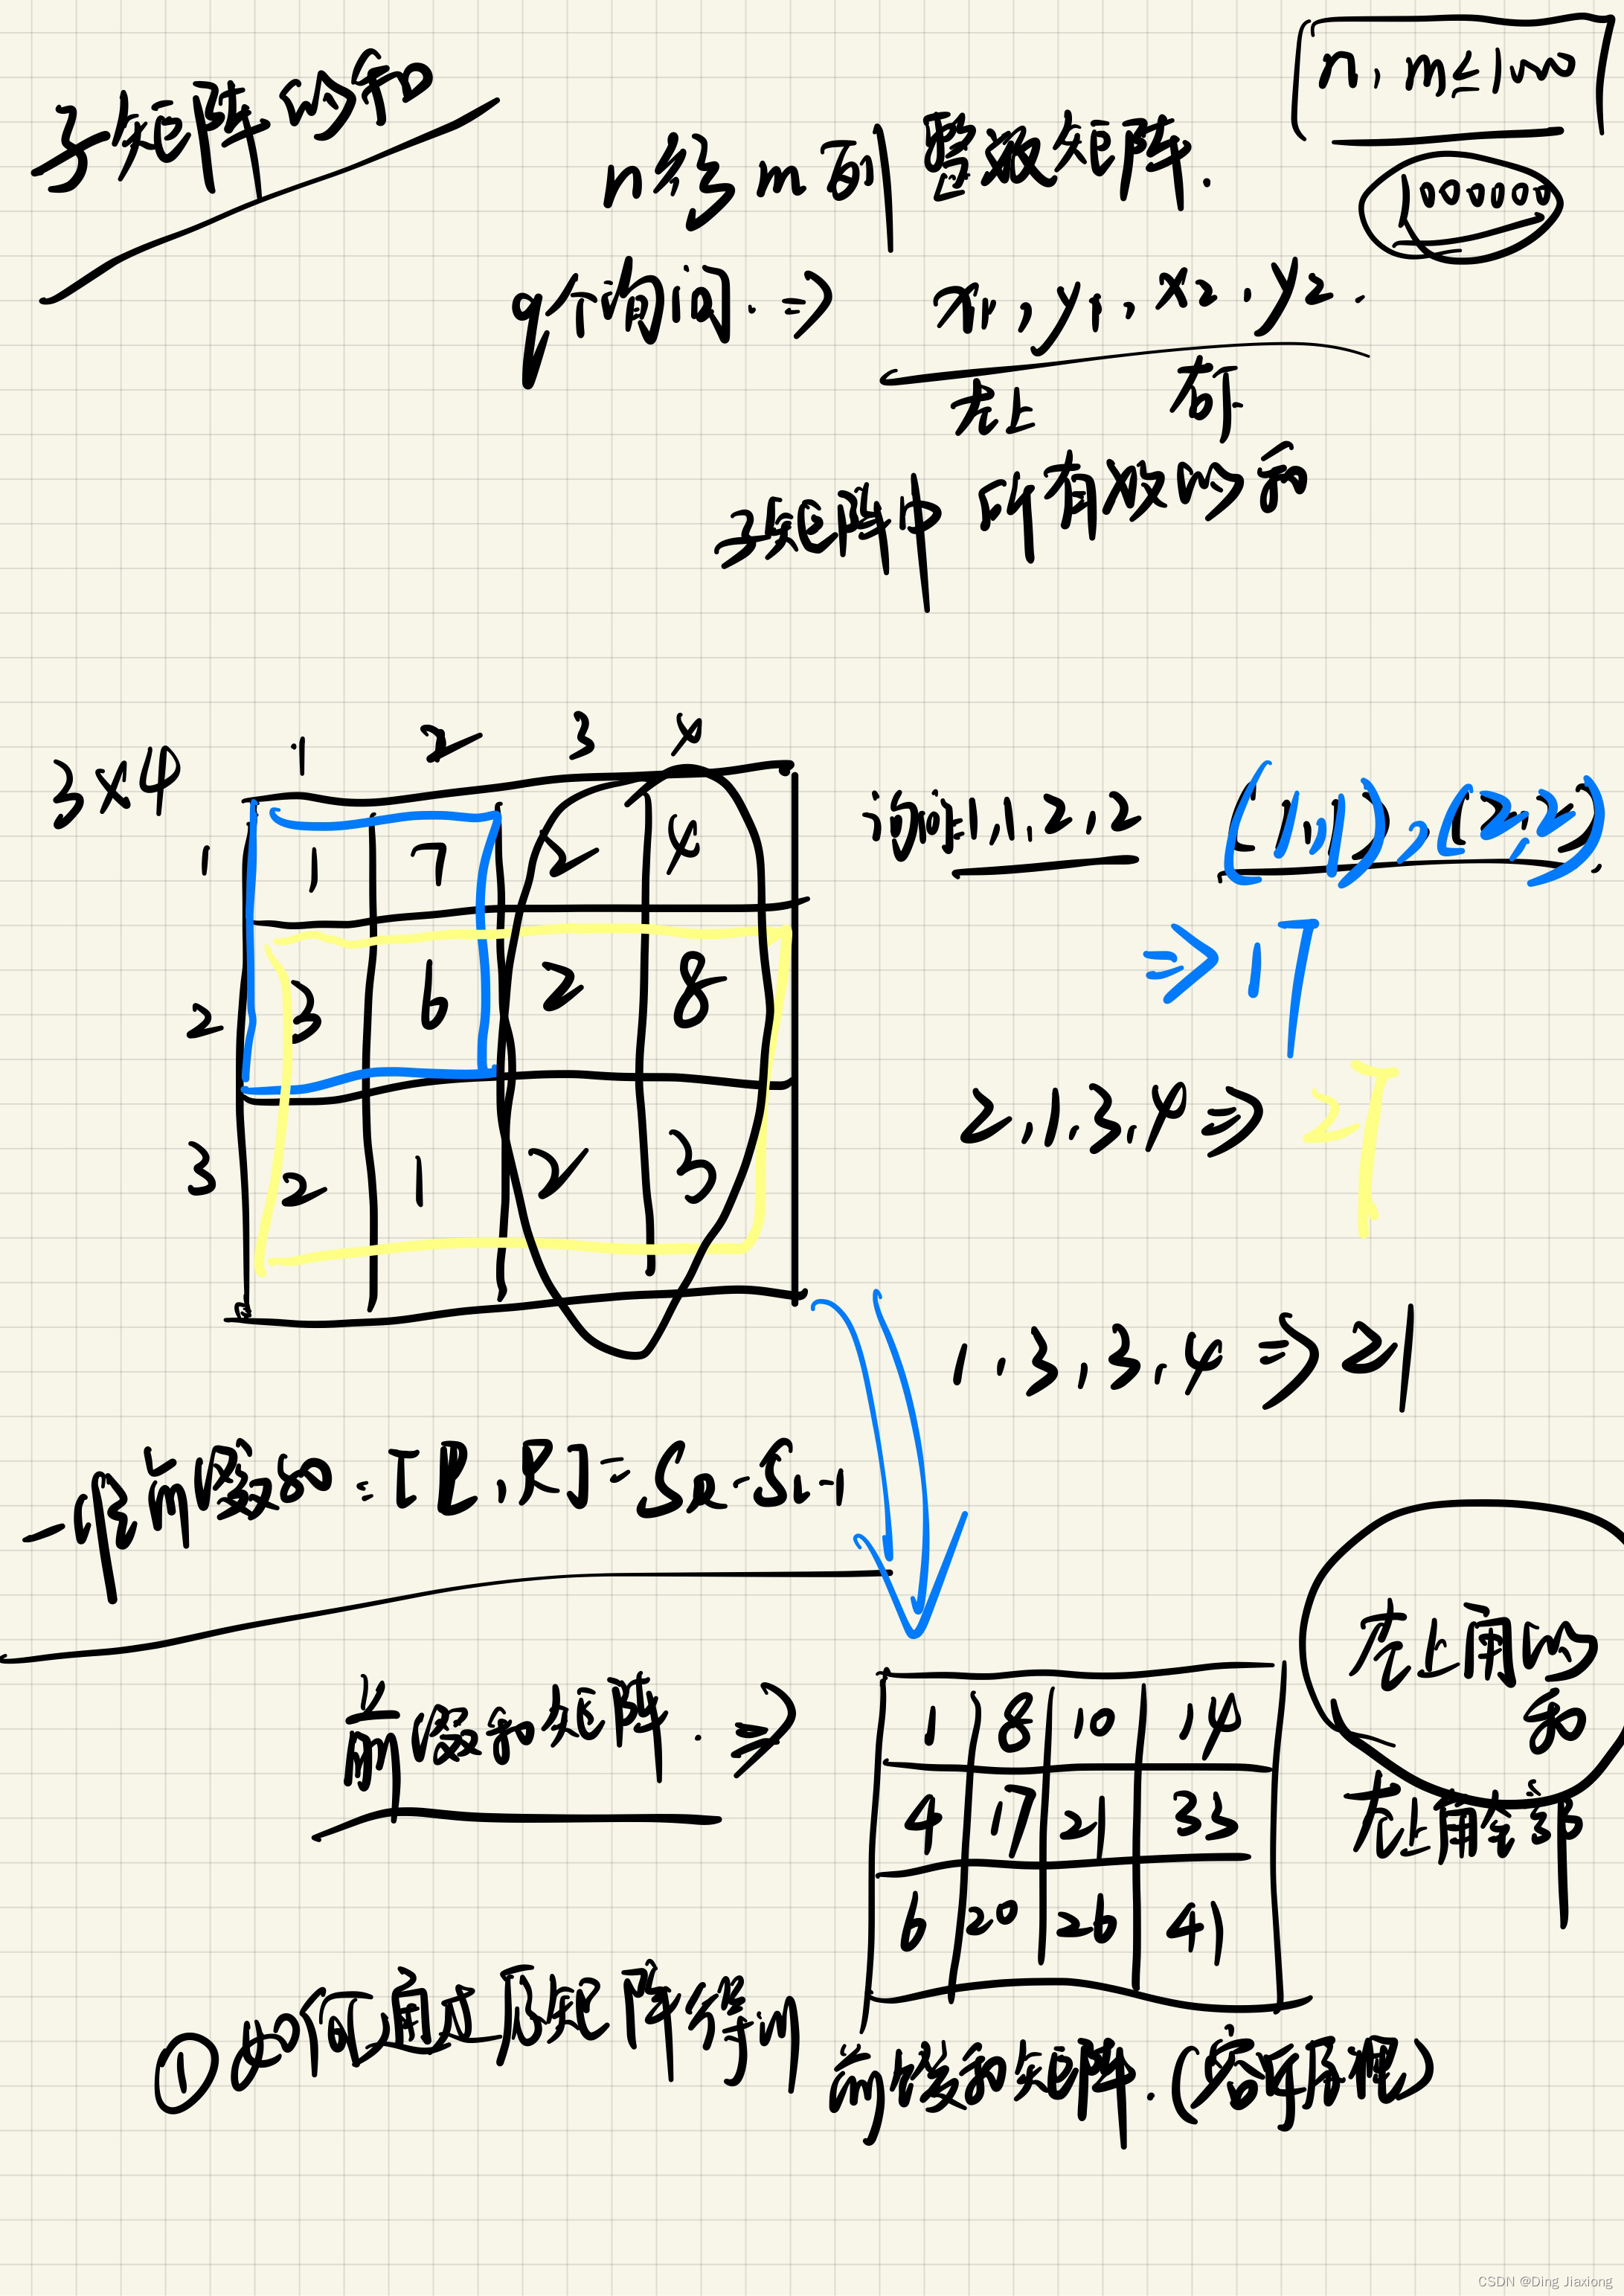 子矩阵的和
n,m≤1000
1000000
n行m列整数矩阵.
q个询问.⇒ x1,y1,x2,y2.
左上 右下
子矩阵中所有数的和
3×4
1 2 3 4
1 1 7 2 4
2 3 6 2 8
3 2 1 2 3
询问:1,1,2,2 (1,1),(2,2)
⇒17
2,1,3,4⇒27
1,3,3,4⇒21
一维前缀和:[L,R]=SR-SL-1
前缀和矩阵.⇒
1 8 10 14
4 17 21 33
6 20 26 41
左上角的
和
左上角全部
①如何通过原矩阵得到前缀和矩阵.(容斥原理)
CSDN @Ding Jiaxiong